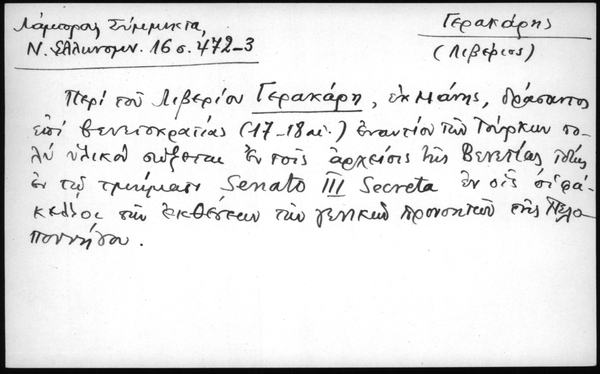 Λάμπρος Σύμμικτα,
Ν. Ἑλληνομν. 16 σ. 472-3
Γερακάρης
(Λιβέριος)
Περὶ τοῦ Λιβερίου Γερακάρη, ἐκ Μάνης, δράσαντος
ἐπὶ βενετοκρατίας (17-18 αἰ.) ἐναντίον τῶν Τούρκων πο-
λὺ ὑλικὸν σώζεται ἐν τοῖς ἀρχείοις τῆς Βενετίας ἰδίως
ἐν τῷ τμήματι Senato III Secreta ἐν οἷς οἱ φά-
κελλοι τῶν ἐκθέσεων τῶν γενικῶν προνοητῶν τῆς Πελο
ποννήσου.